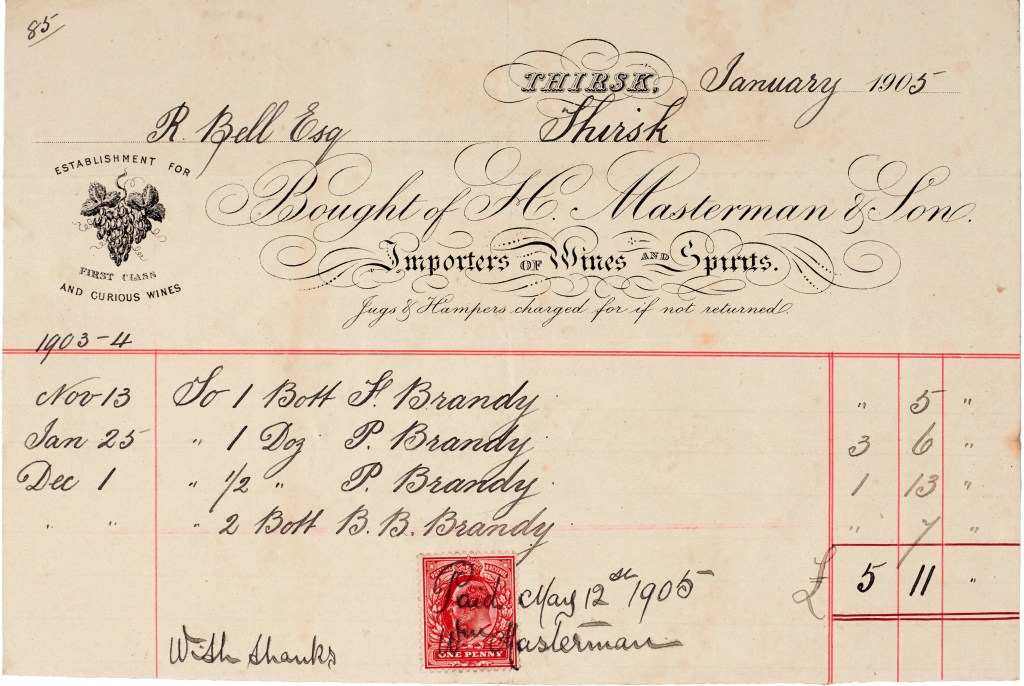 85
THIRSK, January 1905
R. Bell Esq Thirsk
ESTABLISHMENT FOR
FIRST CLASS
AND CURIOUS WINES
Bought of H. Masterman & Son.
Importers OF Wines AND Spirits.
Jugs & Hampers charged for if not returned.
1903-4
Nov 13 To 1 Bott F. Brandy " 5 "
Jan 25 " 1 Doz P. Brandy 3 6 "
Dec 1 " 1/2 " P. Brandy 1 13 "
" " " 2 Bott B. B. Brandy " 7 "
£ 5 11 "
Paid May 12st 1905
With thanks Wm Masterman
ONE PENNY